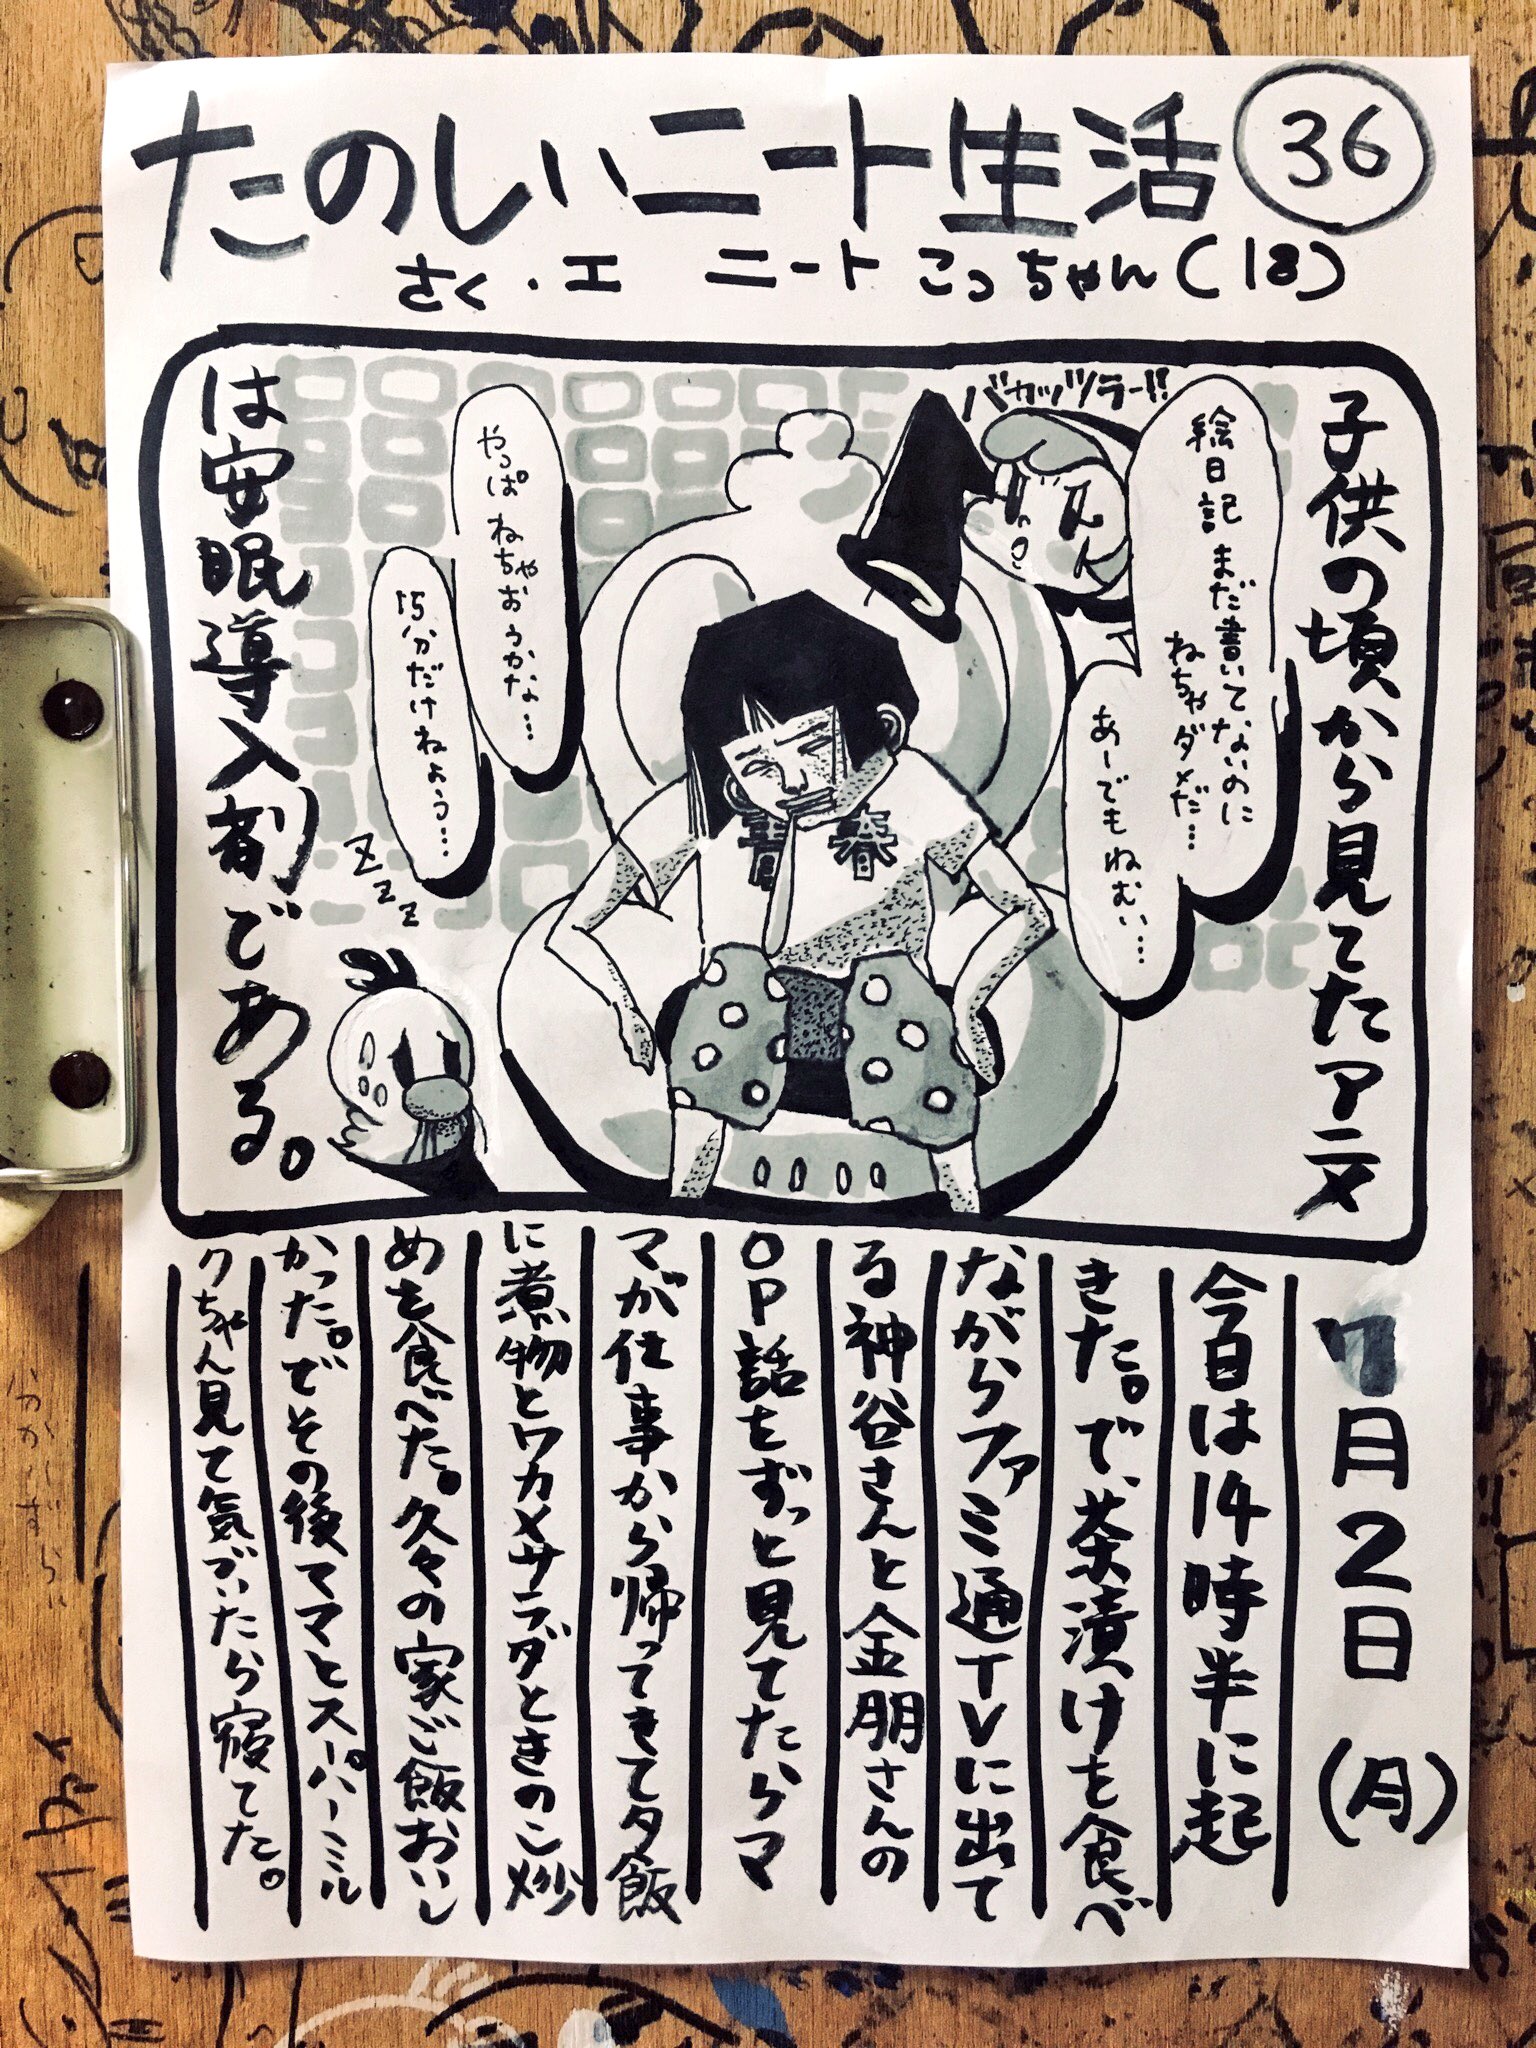 たのしいニート生活 36
さく・エ ニート こっちゃん(18)
子供の頃から見てたアニメ
は安眠導入剤である。
バカッツラー!!
絵日記まだ書いてないのに
ねちゃダメだ…
あーでもねむい…
やっぱ ねちゃおうかな…
15分だけねよう…
ZZZ
青春
7月2日(月)
今日は14時半に起
きた。で、茶漬けを食べ
ながらファミ通TVに出て
る神谷さんと金朋さんの
OP話をずっと見てたらマ
マが仕事から帰ってきて夕飯
に煮物とワカメサラダときのこ炒
めを食べた。久々の家ご飯おいし
かった。でその後ママとスーパーミル
クちゃん見て気づいたら寝てた。